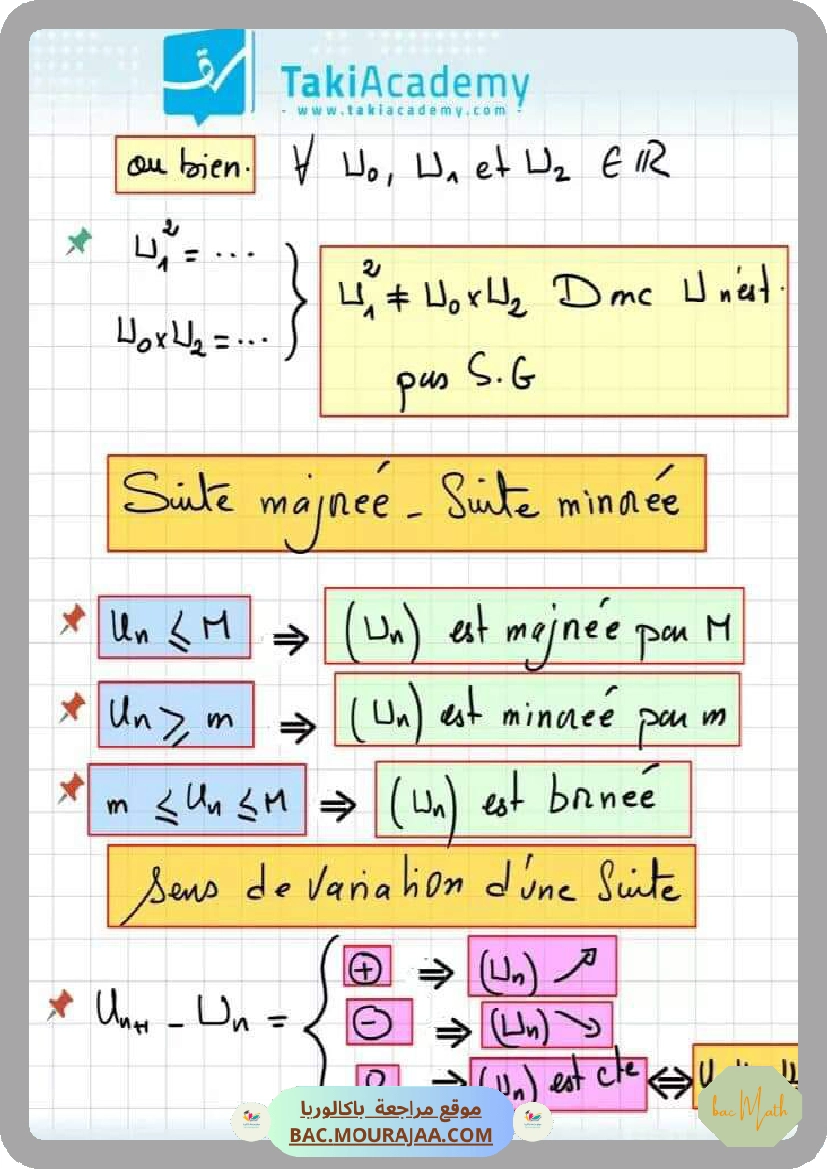 TakiAcademy
- www.takiacademy.com -
ou bien. ∀ U₀, U₁ et U₂ ∈ ℝ
U₁² = ...
U₀xU₂ = ...
U₁² ≠ U₀xU₂ Donc U n'est
pas S.G
Suite majorée - Suite minorée
Uₙ ≤ M ⇒ (Uₙ) est majorée par M
Uₙ ≥ m ⇒ (Uₙ) est minorée par m
m ≤ Uₙ ≤ M ⇒ (Uₙ) est bornée
Sens de Variation d'une Suite
Uₙ₊₁ - Uₙ =
⊕ ⇒ (Uₙ) ↗
⊖ ⇒ (Uₙ) ↘
0 ⇒ (Uₙ) est cte ⇔
موقع مراجعة باكالوريا
BAC.MOURAJAA.COM
bac Math